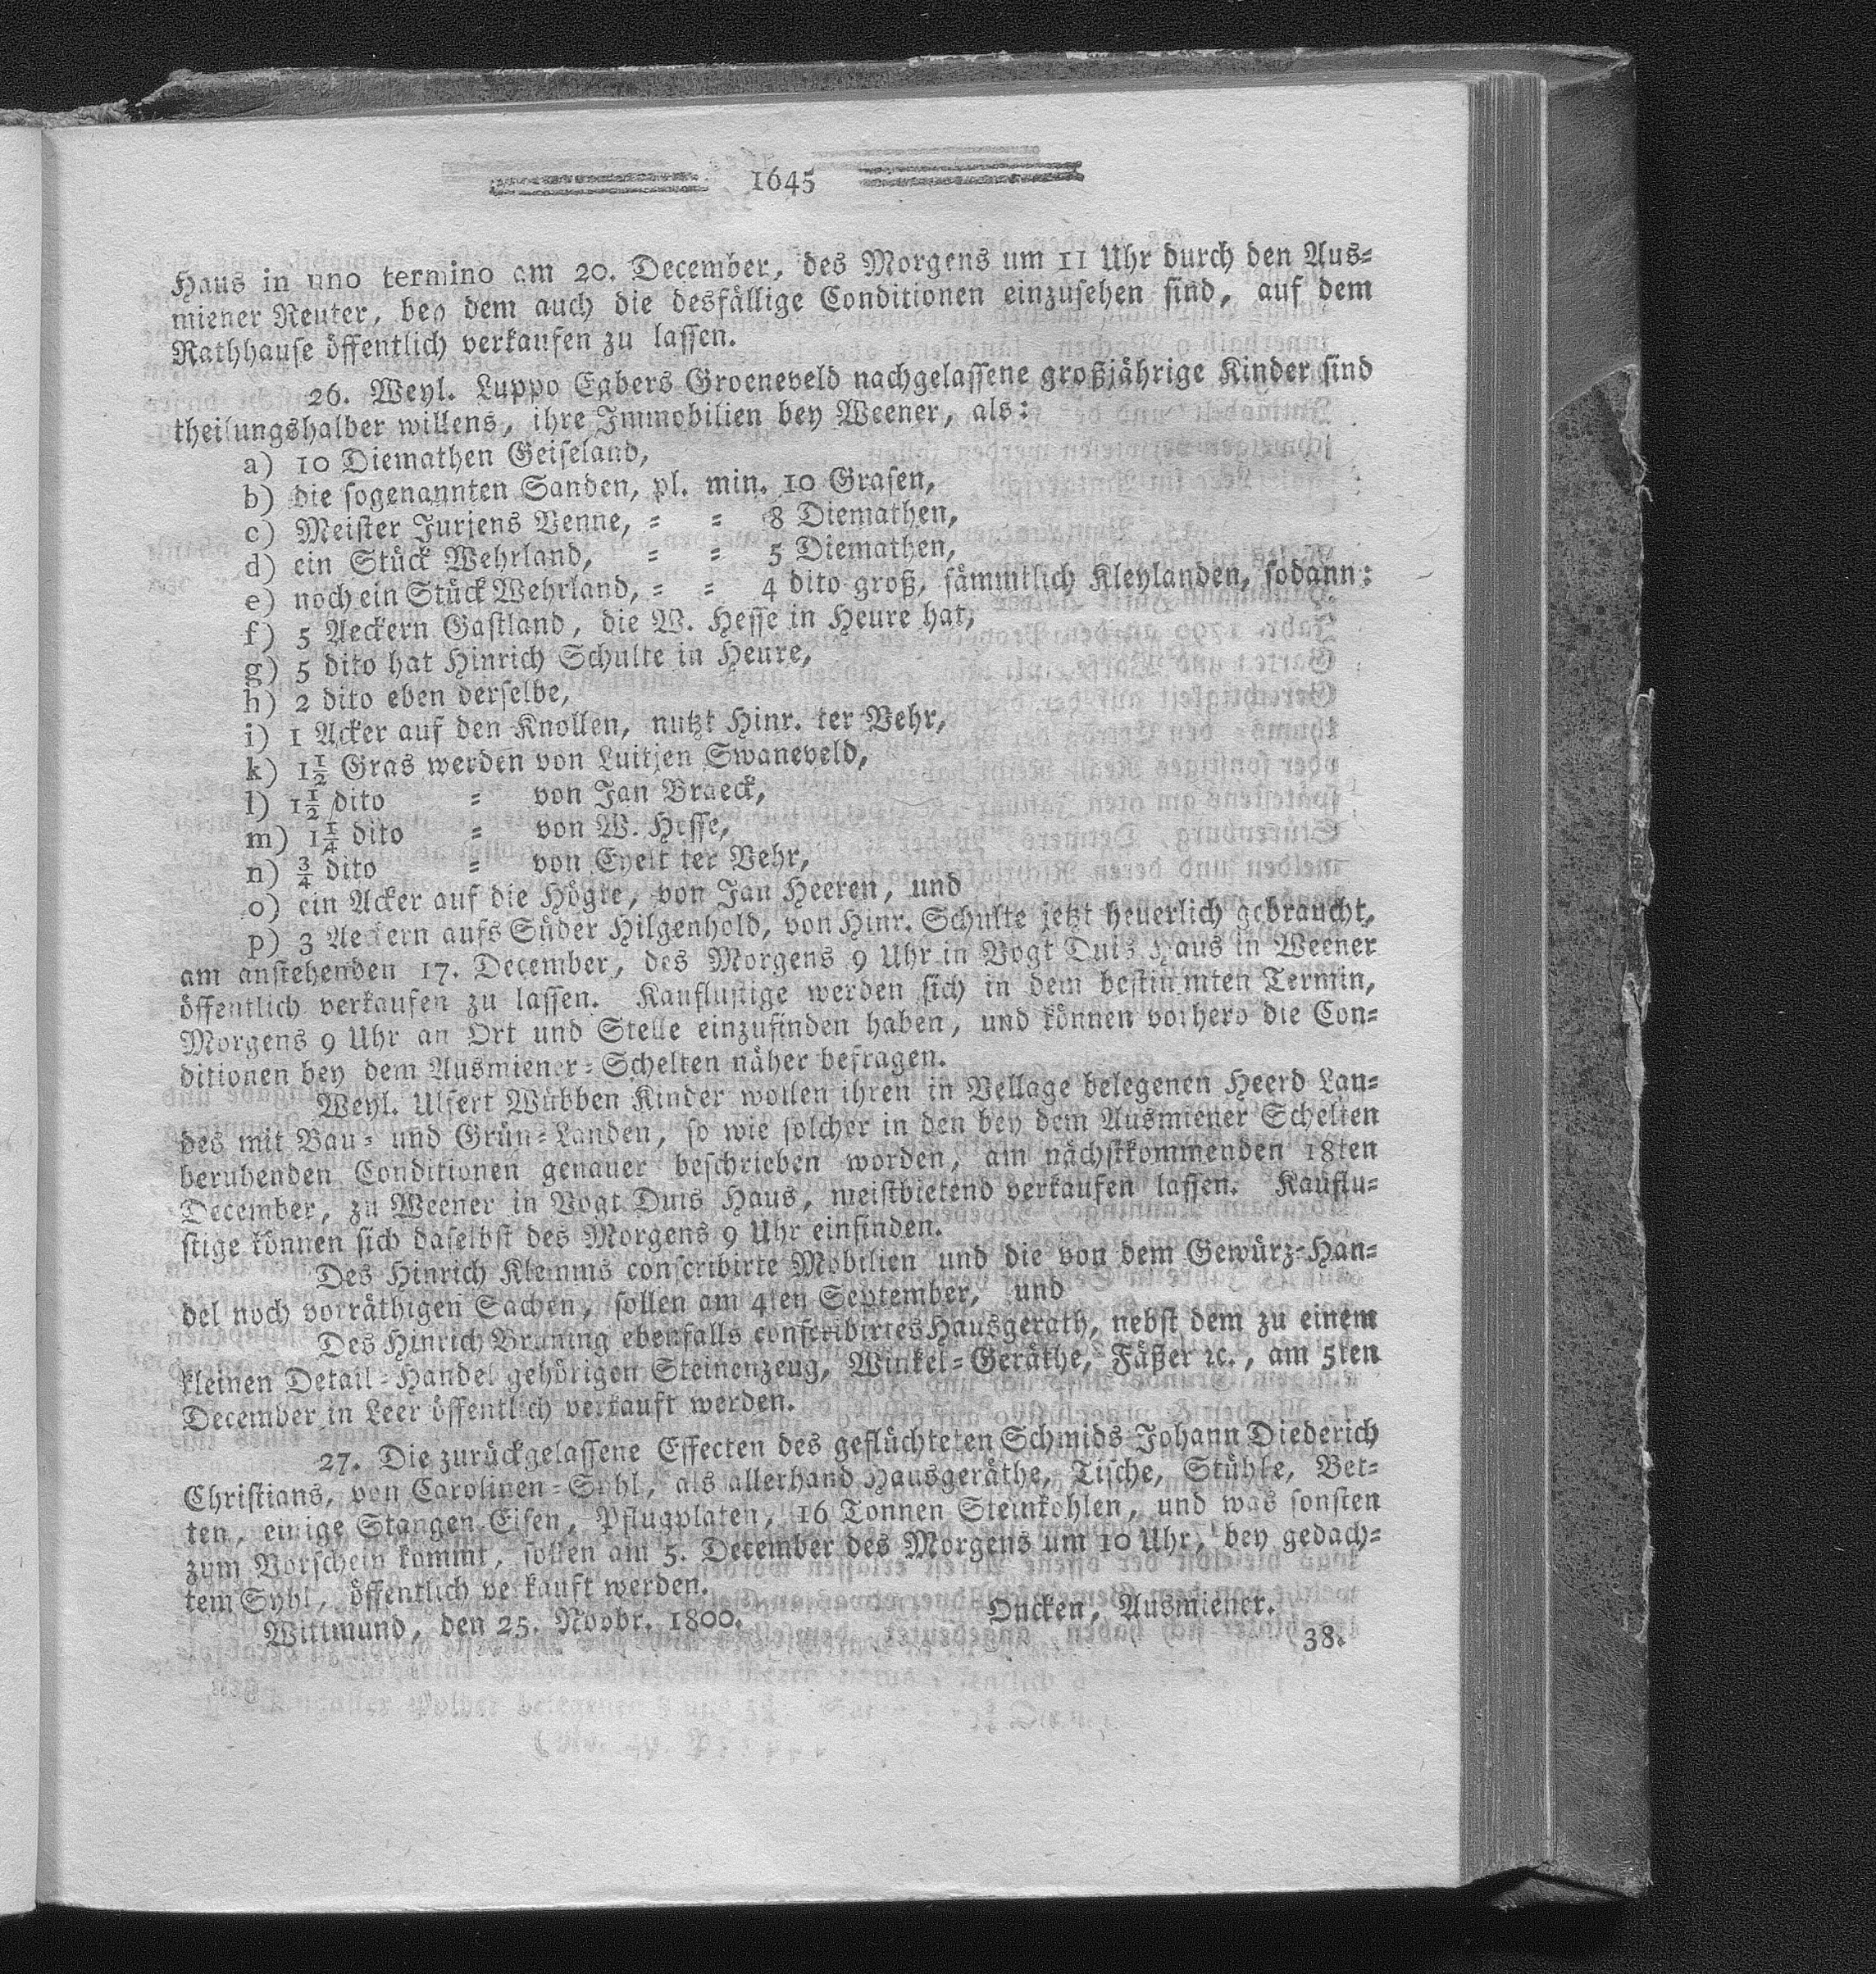 1645
Haus in uno termino am 20. December, des Morgens um 11 Uhr durch den Aus=
miener Reuter, bey dem auch die desfällige Conditionen einzusehen sind, auf dem
Rathhause öffentlich verkaufen zu lassen.
26. Weyl. Luppo Egbers Groeneveld nachgelassene großjährige Kinder sind
theilungshalber willens, ihre Immobilien bey Weener, als:
a) 10 Diemathen Geiseland,
b) die sogenannten Sanden, pl. min. 10 Grasen,
c) Meister Jurjens Venne, = = 8 Diemathen,
d) ein Stück Wehrland, = = 5 Diemathen,
e) noch ein Stück Wehrland, = = 4 dito groß, sämmtlich Kleylanden, sodann:
f) 5 Aeckern Gastland, die W. Hesse in Heure hat,
g) 5 dito hat Hinrich Schulte in Heure,
h) 2 dito eben derselbe,
i) 1 Acker auf den Knollen, nutzt Hinr. ter Vehr,
k) 1½ Gras werden von Luitjen Swaneveld,
l) 1½ dito = von Jan Braeck,
m) 1¼ dito = von W. Hesse,
n) ¾ dito = von Eyelt ter Vehr,
o) ein Acker auf die Högte, von Jan Heeren, und
p) 3 Aeckern aufs Süder Hilgenhold, von Hinr. Schulte jetzt heuerlich gebraucht,
am anstehenden 17. December, des Morgens 9 Uhr in Vogt Duis Haus in Weener
öffentlich verkaufen zu lassen. Kauflustige werden sich in dem bestimmten Termin,
Morgens 9 Uhr an Ort und Stelle einzufinden haben, und können vorhero die Con=
ditionen bey dem Ausmiener=Schelten näher befragen.
Weyl. Ulfert Wübben Kinder wollen ihren in Vellage belegenen Heerd Lan=
des mit Bau= und Grün=Landen, so wie solcher in den bey dem Ausmiener Schelten
beruhenden Conditionen genauer beschrieben worden, am nächstkommenden 18ten
December, zu Weener in Vogt Duis Haus, meistbietend verkaufen lassen. Kauflu=
stige können sich daselbst des Morgens 9 Uhr einfinden.
Des Hinrich Klemms conscribirte Mobilien und die von dem Gewürz=Han=
del noch vorräthigen Sachen, sollen am 4ten September, und
Des Hinrich Bruning ebenfalls conscribirtes Hausgerath, nebst dem zu einem
kleinen Detail=Handel gehörigen Steinenzeug, Winkel=Geräthe, Fäßer ꝛc., am 5ten
December in Leer öffentlich verkauft werden.
27. Die zurückgelassene Effecten des geflüchteten Schmids Johann Diederich
Christians, von Carolinen=Syhl, als allerhand Hausgeräthe, Tische, Stühle, Bet=
ten, einige Stangen Eisen, Pflugplaten, 16 Tonnen Steinkohlen, und was sonsten
zum Vorschein kommt, sollen am 5. December des Morgens um 10 Uhr, bey gedach=
tem Syhl, öffentlich verkauft werden.
Wittmund, den 25. Novbr. 1800. Oncken, Ausmiener.
38.